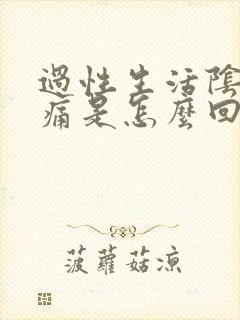 過性生活陰
痛是怎麼回
菠蘿菇涼